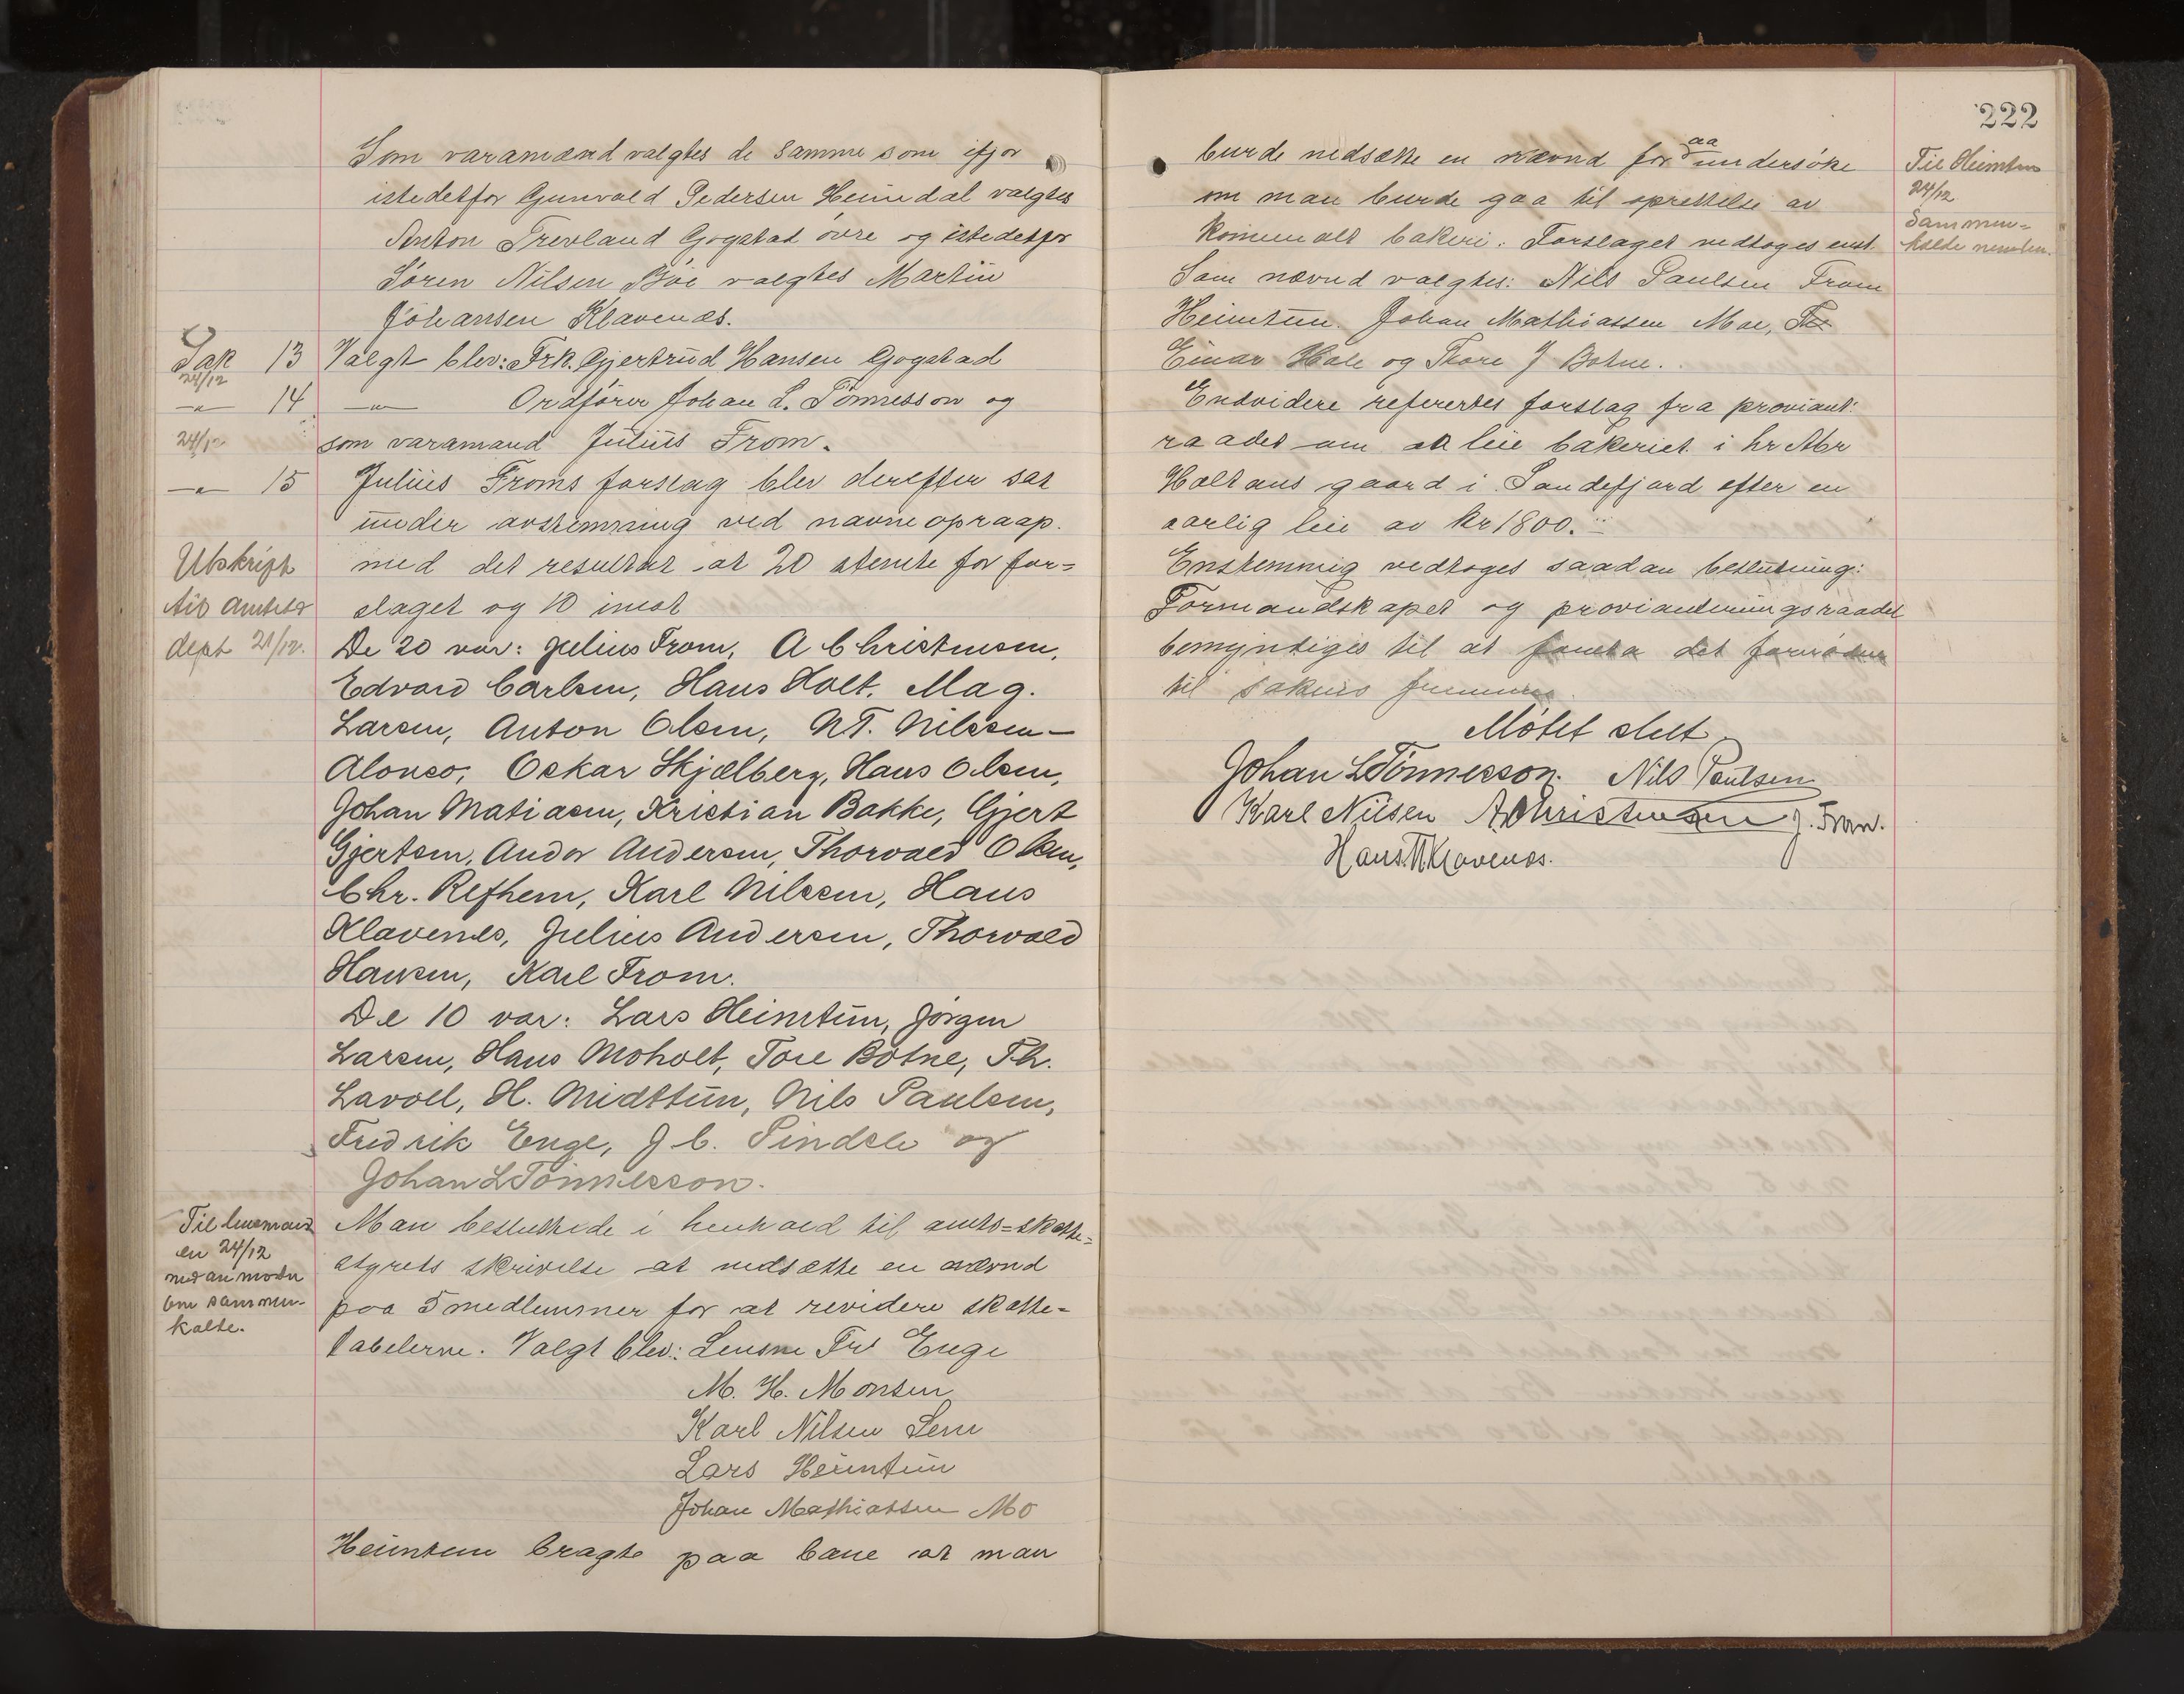 Som varamænd valgtes de samme som ifjor
istedetfor Gunvald Pedersen Heimdal valgtes
Anton Trevland Gogstad övre og istedetfor
Sören Nilsen Böe valgtes Martin
Johansen Klavenæs.
Sak 13 Valgt blev: Frk. Gjertrud Hansen Gogstad
24/12
-"- 14 -"- Ordförer Johan L. Tönnesson og
24/12 som varamand Julius From.
-"- 15 Julius Froms forslag blev derefter sat
under avstemning ved navneopraap.
Utskript
til amtets
dept 21/12.
med det resultat at 20 stemte for for=
slaget og 10 imot
De 20 var: Julius From, A Christensen,
Edvard Carlsen, Hans Holt, Mag.
Larsen, Anton Olsen, N.T. Nilssen-
Alonso, Oskar Skjælberg, Hans Olsen,
Johan Matiasen, Kristian Bakke, Gjert
Gjertsen, Andor Andersen, Thorvald Olsen,
Chr. Refhem, Karl Nilssen, Hans
Klavenes, Julius Andersen, Thorvald
Hansen, Karl From.
De 10 var: Lars Heimtun, Jörgen
Larsen, Hans Moholt, Tore Botne, Th.
Lavoll, H. Midttun, Nils Paulsen,
Fredrik Enge, J C. Pindsle og
Johan L Tönnesson.
Til lensmand
en 24/12
med anmodn
om sammen-
kalte.
Man besluttede i henhold til amts=skatte=
styrets skrivelse at nedsætte en nævnd
paa 5 medlemmer for at revidere skatte=
tabelerne. Valgt blev: Lensm Fr Enge
M. H. Monsen
Karl Nilsen Sem
Lars Heimtun
Johan Mathiassen Mo
Heimtun bragte paa bane at man
222
burde nedsætte en nævnd for aa undersöke
om man burde gaa til oprettelse av
komunalt bakeri. Forslaget vedtoges enst.
Til Heimtun
24/12
Sammen=
kalte nemden.
Som nævnd valgtes: Nils Paulsen From
Heimtun. Johan Mathiassen Moe,
Einar Hole og Thore J Botne.
Endvidere referertes forslag fra proviant:
raadet om at leie bakeriet i hr Abr
Holtans gaard i Sandefjord efter en
aarlig leie av kr 1800.
Enstemmig vedtoges saadan beslutning:
Formandskapet og provianteringsraadet
bemyndiges til at foreta det fornödne
til sakens fremme.
Mötet slut.
Johan L Tönnesson. Nils Paulsen
Karl Nilsen A Christensen J. From.
Hans M Klavenæs.